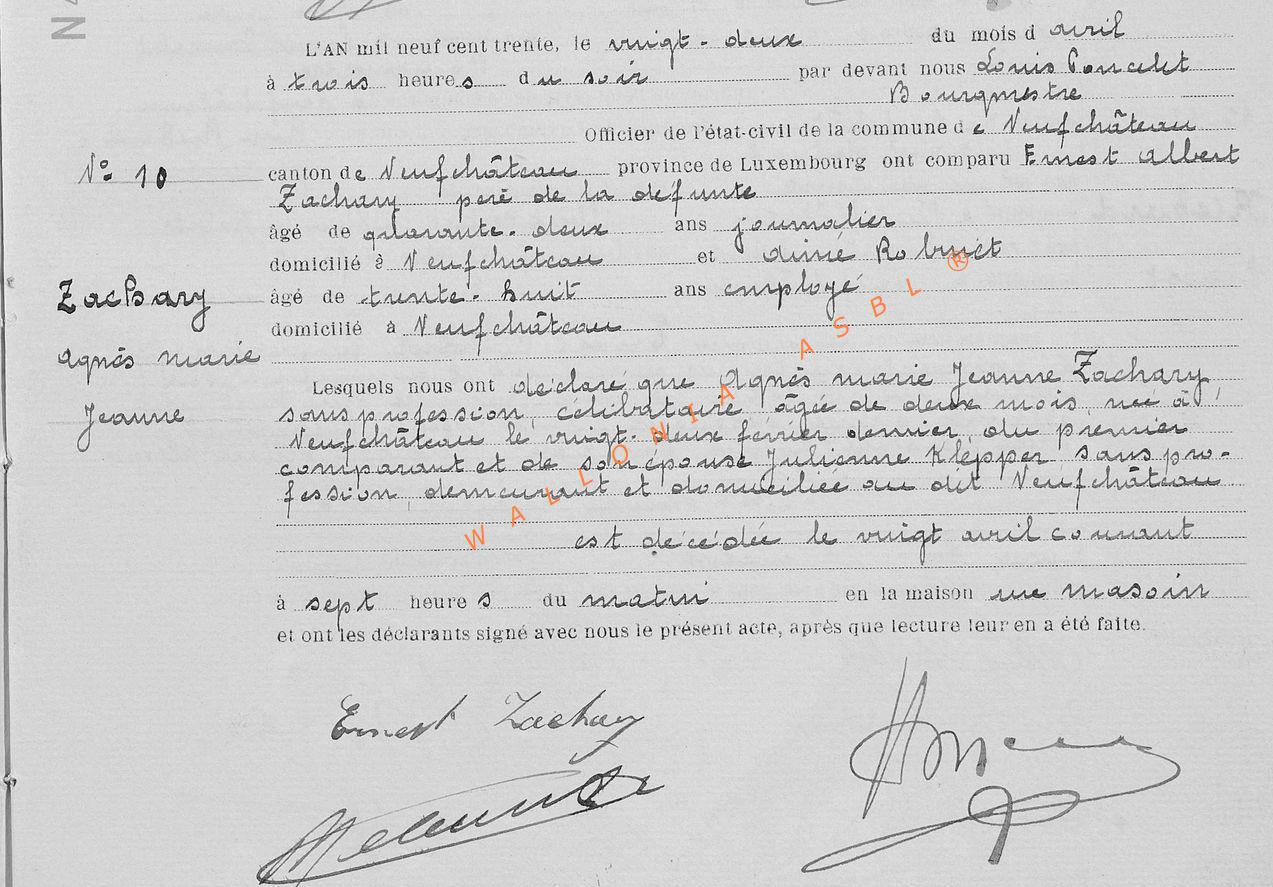 L'AN mil neuf cent trente, le vingt-deux du mois d avril
à trois heures du soir par devant nous Louis Poncelet
Bourgmestre
Officier de l'état-civil de la commune de Neufchâteau
N° 10
canton de Neufchâteau province de Luxembourg ont comparu Ernest Albert
Zachary père de la defunte
âgé de quarante-deux ans journalier
domicilié à Neufchâteau et Aimé Robinet
Zachary
âgé de trente-huit ans employé
domicilié à Neufchâteau
Agnès Marie
Jeanne
Lesquels nous ont déclaré que Agnès Marie Jeanne Zachary,
sans profession, célibataire âgée de deux mois, née à
Neufchâteau le vingt-deux février dernier, du premier
comparant et de son épouse Julienne Klepper sans pro-
fession demeurant et domiciliée au dit Neufchâteau
est décédée le vingt avril courant
à sept heures du matin en la maison rue Masoin
et ont les déclarants signé avec nous le présent acte, après que lecture leur en a été faite.
Ernest Zachary
WALLONIA ASBL ®